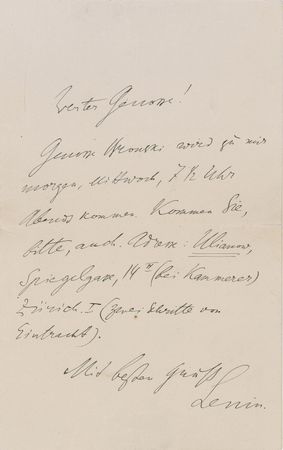 Werter Genosse!
Genosse Wronski wird zu mir
morgen, Mittwoch, 7 ½ Uhr
Abends kommen. Kommen Sie,
bitte, auch. Adresse: Ulianow,
Spiegelgasse, 14 II (bei Kammerer)
Zürich. I (zwei Schritte von
Eintracht).
Mit besten Gruß
Lenin.